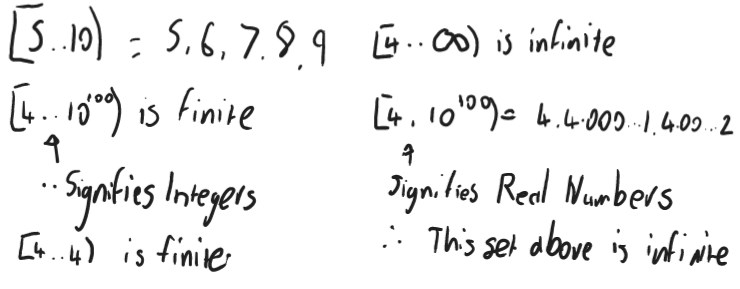 [5..10) = 5, 6, 7, 8, 9
[4..10¹⁰⁰) is finite
↑
.. Signifies Integers
[4..4) is finite
[4..∞) is infinite
[4, 10¹⁰⁰) = 4, 4.000...1, 4.00...2
↑
, Signifies Real Numbers
∴ This set above is infinite